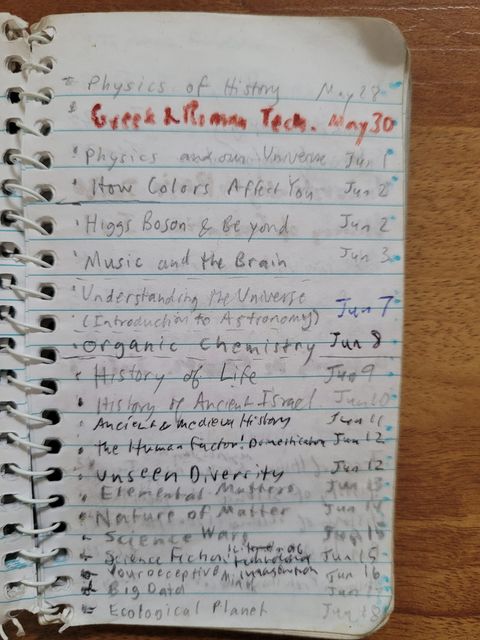 Physics of History May 28
Greek & Roman Tech. May 30
Physics and our Universe Jun 1
How Colors Affect You Jun 2
Higgs Boson & Beyond Jun 2
Music and the Brain Jun 3
Understanding the Universe
(Introduction to Astronomy) Jun 7
Organic Chemistry Jun 8
History of Life Jun 9
History of Ancient Israel Jun 10
Ancient & Medieval History Jun 11
The Human Factor: Domestication Jun 12
Unseen Diversity Jun 12
Elemental Matters Jun 13
Nature of Matter Jun 14
Science Wars Jun 15
Science Fiction Jun 15
Your Deceptive Mind Jun 16
Big Data Jun
Ecological Planet Jun 18